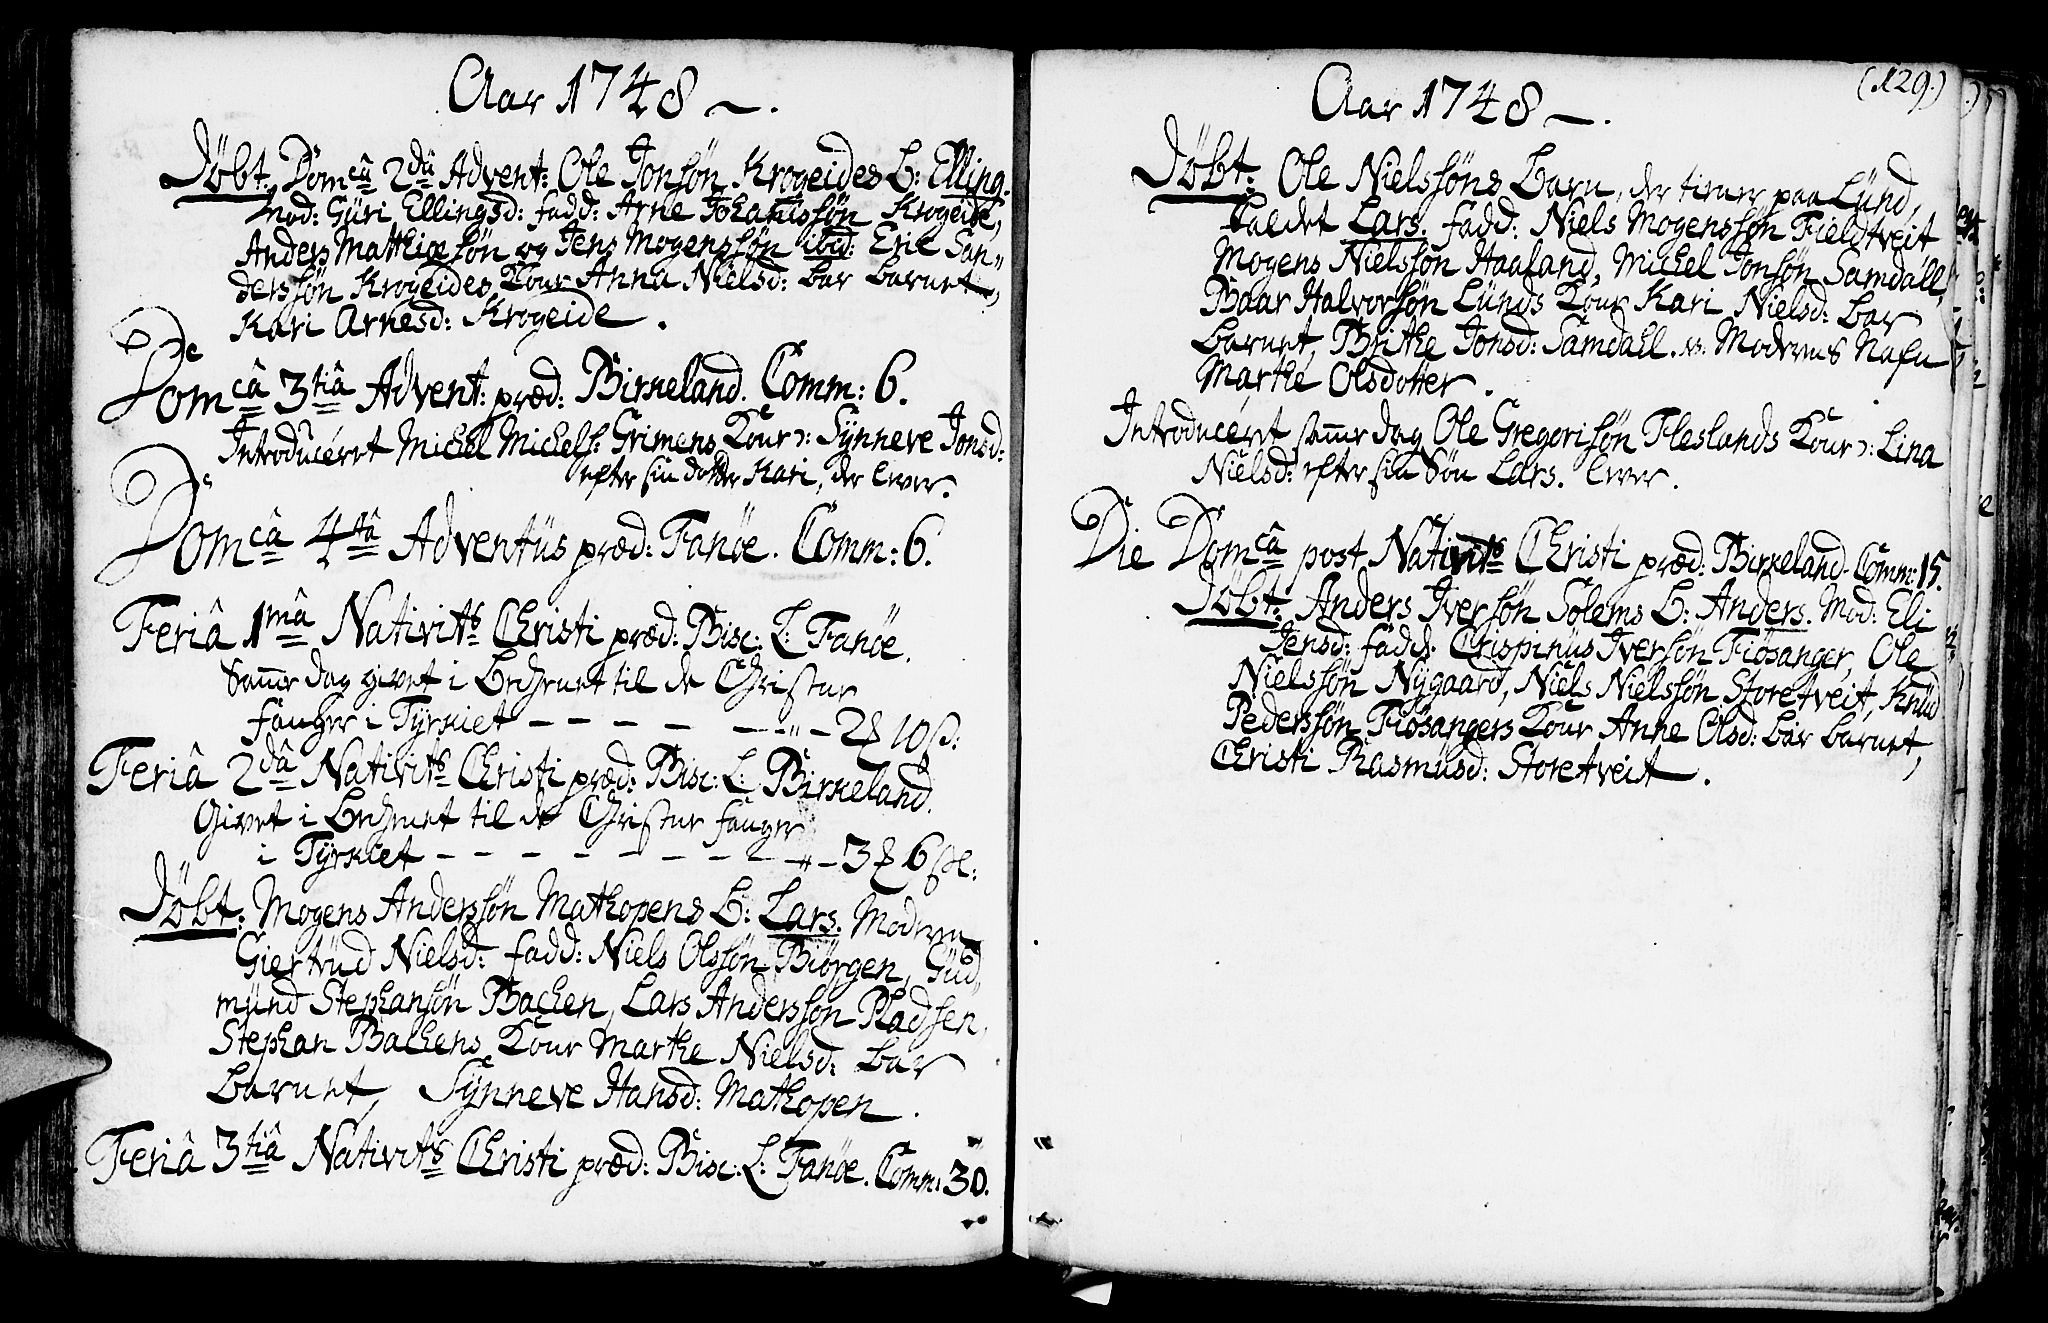 Aar 1748 –.
Döbt. Domcâ 2dâ Advent: Ole Jonsön Krogeides B: Elling.
Mod: Güri Ellingsd: fadd: Arne Johannssön Krogeide,
Anders Mathiæsön og Jens Mogenssön ibid: Eric San„
derssön Krogeides Kone Anna Nielsd: bar barnet,
Kari Arnesd: Krogeide.
Domcâ 3tiâ Advent: præd: Birkeland. Comm: 6.
Introduceret Michel Michels: Grimens Kone ɔ: Synneve Jonsd:
efter sin dotter Kari, der lever.
Domcâ 4tâ Adventüs præd: Fanöe. Comm: 6.
Feriâ 1mâ Nativits Christi præd: Bisc: L: Fanöe.
Samme dag givet i beckenet til de Christne
fanger i Tyrkiet – – – – – – „ – 2 10 ß:
Feriâ 2dâ Nativits Christi præd: Bisc: L: Birkeland.
Givet i beckenet til de Christne fanger
i Tyrkiet – – – – – – – – „ – 3 6 ß:
Döbt: Mogens Anderssön Mathopens B: Lars. Moderen
Giertrud Nielsd: fadd: Niels Olssön Biörgen, Güd„
münd Stephansön Backen, Lars Anderssön Pladsen,
Stephan Backens Kone Marthe Nielsd: bar
barnet, Synneve Hansd: Mathopen.
Feriâ 3tiâ Nativits Christi præd: Bisc: L: Fanöe. Comm: 30.
(129.)
Aar 1748 –.
Döbt: Ole Nielssöns Barn, der tiener paa Lünd,
kaldet Lars. fadd: Niels Mogenssön Fieldtveit
Mogens Nielssön Haaland, Michel Jonsön Samdall,
Baar Halvorsön Lünds Kone Kari Nielsd: bar
barnet, Brithe Jonsd: Samdahl. Moderens Nafn
Marthe Olsdotter.
Introduceret samme dag Ole Gregorisön Fleslands Kone ɔ: Lina
Nielsd: efter sin Sön Lars. lever.
Die Domcâ post Nativits Christi præd: Birkeland. Comm: 15.
Döbt: Anders Iversön Solems B: Anders. Mod: Eli
Jensd: fadd: Crispinüs Iversön Fiösanger, Ole
Nielssön Nygaard, Niels Nielssön Storetveit, Knüd
Pederssön Fiösangers Kone Anne Olsd: bar barnet,
Christi Rasmüsd: Storetveit.